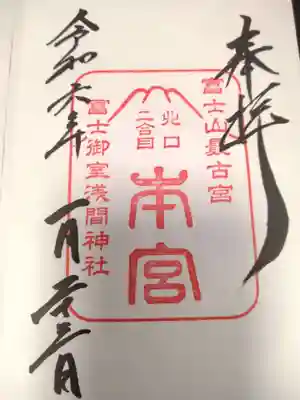 奉拝
冨士山最古宮
北口
二合目
本宮
冨士御室浅間神社
令和六年 一月 廿三日